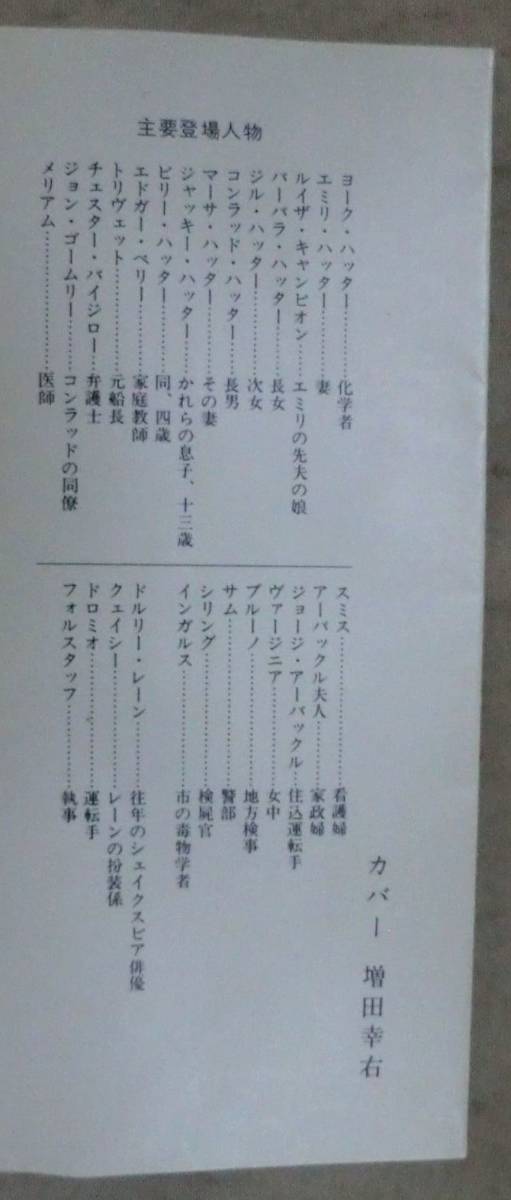 主要登場人物
ヨーク・ハッター…………化学者
エミリ・ハッター…………妻
ルイザ・キャンピオン……エミリの先夫の娘
バーバラ・ハッター………長女
ジル・ハッター……………次女
コンラッド・ハッター……長男
マーサ・ハッター…………その妻
ジャッキー・ハッター……かれらの息子、十三歳
ビリー・ハッター…………同、四歳
エドガー・ペリー…………家庭教師
トリヴェット………………元船長
チェスター・バイジロー…弁護士
ジョン・ゴームリー………コンラッドの同僚
メリアム……………………医師
スミス………………………看護婦
アーバックル夫人…………家政婦
ジョージ・アーバックル…住込運転手
ヴァージニア………………女中
ブルーノ……………………地方検事
サム…………………………警部
シリング……………………検屍官
インガルス…………………市の毒物学者
ドルリー・レーン…………往年のシェイクスピア俳優
クェイシー…………………レーンの扮装係
ドロミオ……………………運転手
フォルスタッフ……………執事
カバー　増田幸右